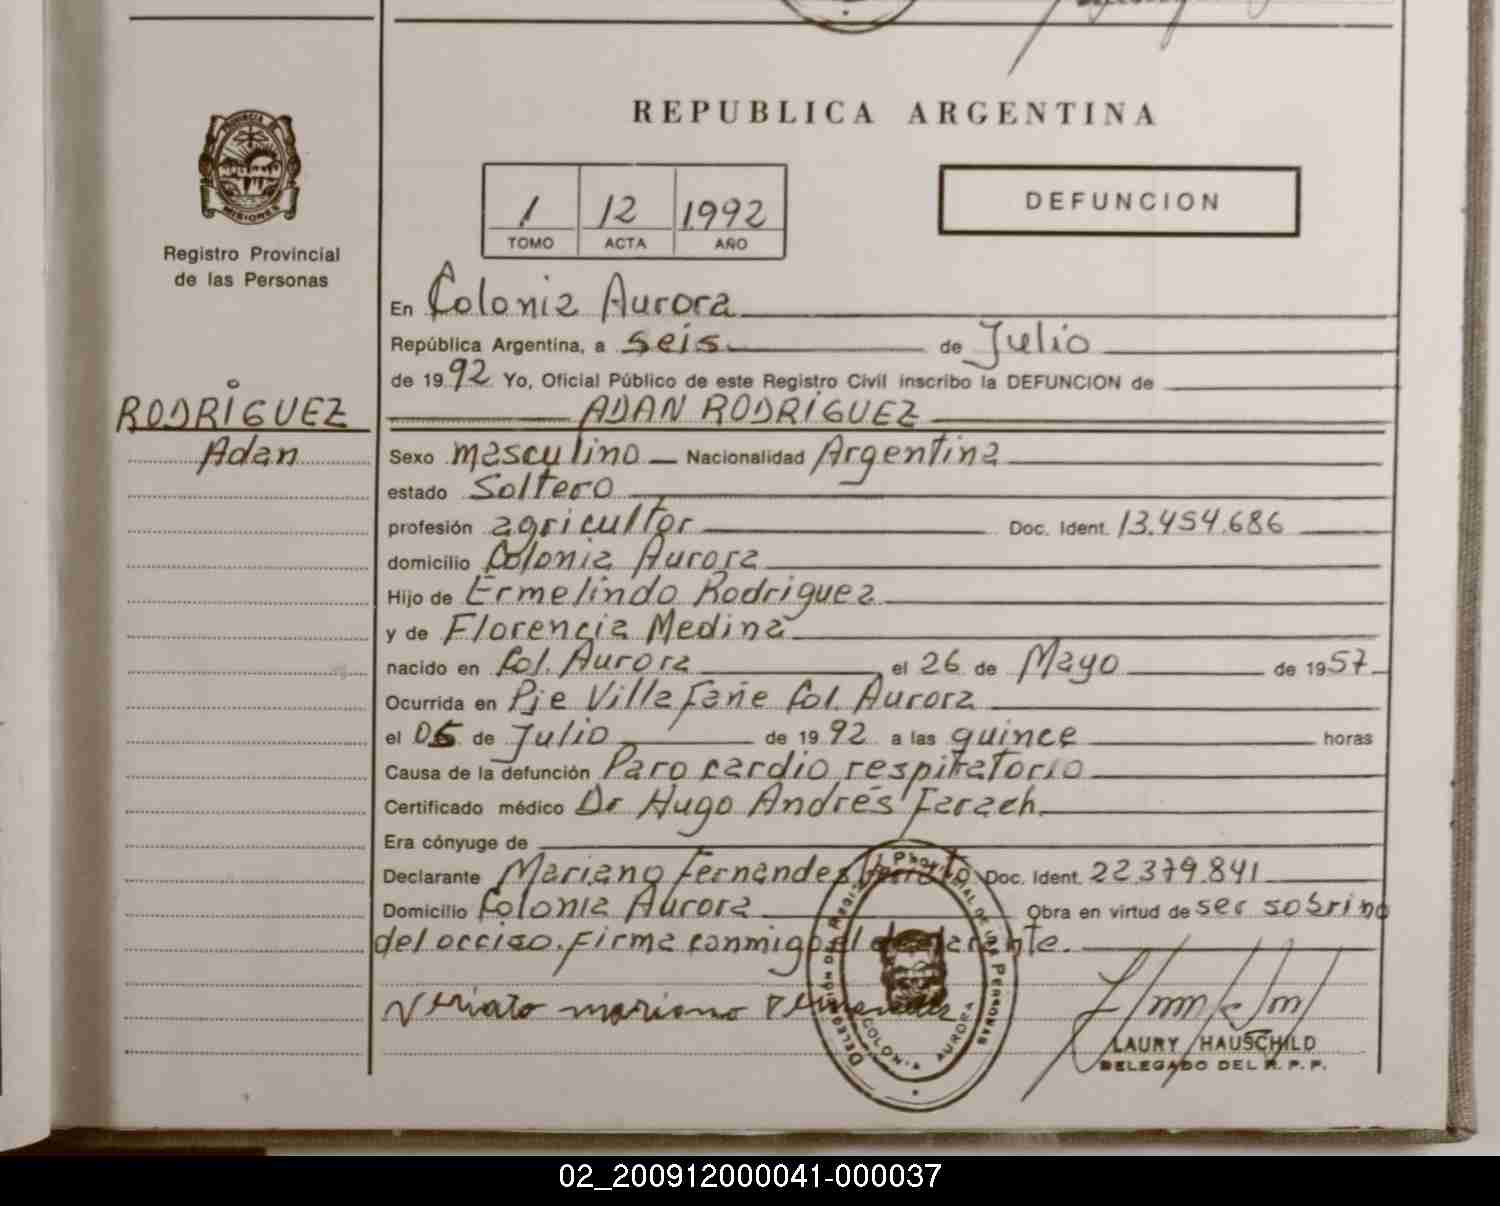 REPUBLICA ARGENTINA
PROVINCIA DE
MISIONES
Registro Provincial
de las Personas
1 12 1992
TOMO ACTA AÑO
DEFUNCION
En Colonia Aurora
República Argentina, a seis de Julio
de 1992 Yo, Oficial Público de este Registro Civil inscribo la DEFUNCION de
RODRIGUEZ
Adan
ADAN RODRIGUEZ
Sexo masculino Nacionalidad Argentina
estado Soltero
profesión agricultor Doc. Ident. 13.454.686
domicilio Colonia Aurora
Hijo de Ermelindo Rodriguez
y de Florencia Medina
nacido en Col. Aurora el 26 de Mayo de 1957
Ocurrida en Pje Villafañe Col. Aurora
el 05 de Julio de 1992 a las quince horas
Causa de la defunción Paro cardio respiratorio
Certificado médico Dr Hugo Andrés Farach.
Era cónyuge de
Declarante Mariano Fernandez Doc. Ident. 22.379.841
Domicilio Colonia Aurora Obra en virtud de ser sobrino
del occiso. Firma conmigo el declarante.
DELEGACIÓN DEL REGISTRO PROVINCIAL DE LAS PERSONAS
COLONIA AURORA
mariano
LAURY HAUSCHILD
DELEGADO DEL R. P. P.
02_200912000041-000037